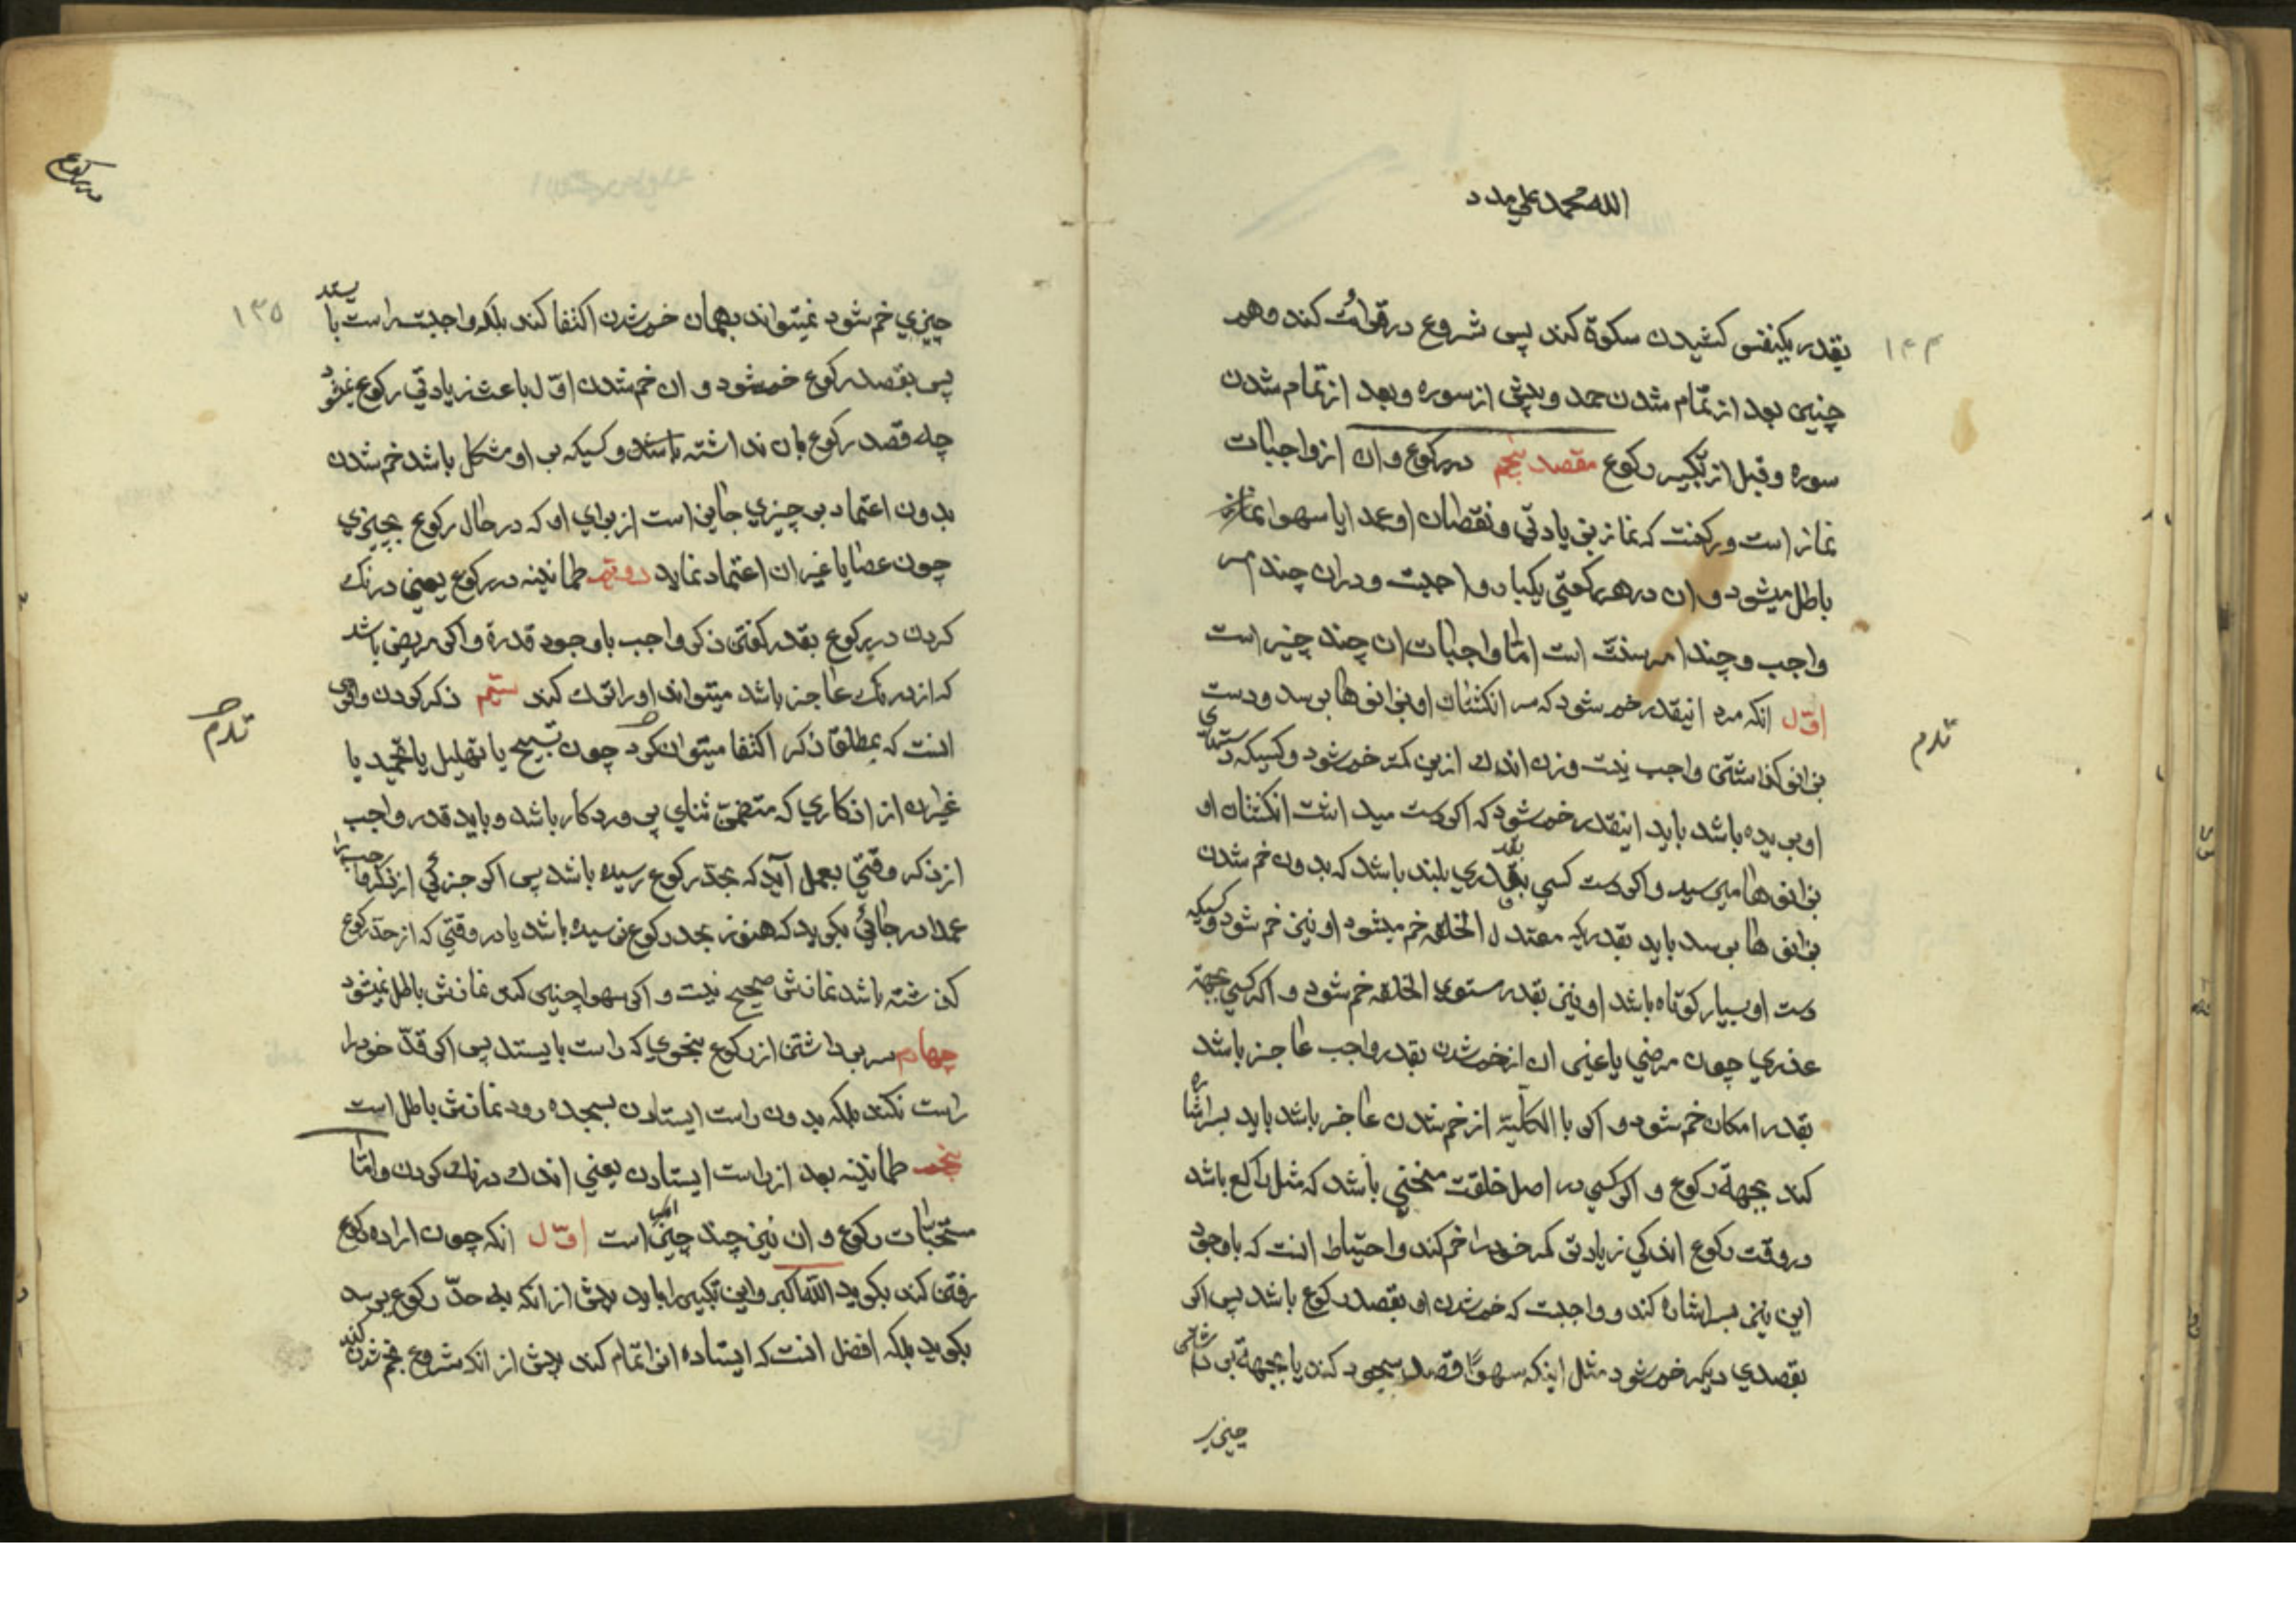 الله محمد علي مدد
١٣۴
بقدر یکنفس کشیدن سکوة کند پس شروع در قرائت کند و هم
چنین بعد از تمام شدن حمد و پیش از سوره و بعد از تمام شدن
سوره و قبل از تکبیر رکوع مقصد پنجم در رکوع و ان از واجبات
نماز است و رکنست که نماز بزیادتی و نقصان او عمدا یا سهوا نماز
باطل میشود و ان در هر رکعتی یکبار واجبست و در ان چند امر
واجب و چند امر سنت است امّا واجبات ان چند چیز است
اوّل انکه مرد اینقدر خم شود که سر انکشتان او بزانوها برسد و دست
بزانو کذاشتن واجب نیست و زن اندک ازین کمتر خم شود و کسیکه دستهای
او بریده باشد باید اینقدر خم شود که اکر دست میداشت انکشتان او
بزانوها میرسید و اکر دست کسی بقدری بلند باشد که بدون خم شدن
بزانوها برسد باید بقدریکه معتدل الخلقه خم میشود او نیز خم شود و کسیکه
دست او بسیار کوتاه باشد او نیز بقدر مستوی الخلقه خم شود و اکر کسی بجهة
عذری چون مرضی یا غیر ان از خم شدن بقدر واجب عاجز باشد
بقدر امکان خم شود و اکر با الکلّیة از خم شدن عاجز باشد باید بسر اشاره
کند بجهة رکوع و اکر کسی در اصل خلقت منحنی باشد که مثل راکع باشد
در وقت رکوع اندکی زیادتر کمر خود را خم کند و احتیاط انست که باوجود
این نیز بسر اشاره کند و واجبست که خم شدن او بقصد رکوع باشد پس اکر
بقصدی دیکر خم شود مثل اینکه سهوًا قصد سجود کند یا بجهة بر داشتن
چیزی
در رکوع
١٣۵
چیزی خم شود نمیتواند بهمان خم شدن اکتفا کند بلکه واجبست راست بایستد
پس بقصد رکوع خم شود و ان خم شدن اوّل باعث زیادتی رکوع نمیشود
چه قصد رکوع بان نداشته باشد و کسیکه بر او مشکل باشد خم شدن
بدون اعتماد بر چیزی جایز است از برای او که در حال رکوع بچیزی
چون عصا یا غیر ان اعتماد نماید دوّیم طمانینه در رکوع یعنی درنک
کردن در رکوع بقدر کفتن ذکر واجب باوجود قدرة و اکر مریض باشد
که از درنک عاجز باشد میتواند او را ترک کند سیّم ذکر کردن و اقوی
انست که بمطلق ذکر اکتفا میتوان کرد چون تسبیح یا تهلیل یا تحمید یا
غیر ان از اذکاری که متضمّن ثنای پروردکار باشد و باید قدر واجب
از ذکر وقتی بعمل آید که بحدّ رکوع رسیده باشد پس اکر جزئی از ذکر واجب را
عمدا در جائی بکوید که هنوز بحد رکوع نرسیده باشد یا در وقتی که از حدّ رکوع
کذشته باشد نمازش صحیح نیست و اکر سهوا چنین کند نمازش باطل نمیشود
چهارم سر برداشتن از رکوع بنحوی که راست بایستد پس اکر قدّ خود را
راست نکند بلکه بدون راست ایستادن بسجده رود نمازش باطل است
پنجم طمانینه بعد از راست ایستادن یعنی اندک درنک کردن و امّا
مستحبّات رکوع و ان نیز چند چیز است اوّل انکه چون اراده رکوع
رفتن کند بکوید الله اکبر و این تکبیر را باید پیش از انکه به حدّ رکوع برسد
بکوید بلکه افضل انست که ایستاده انرا تمام کند پیش از انکه شروع بخم شدن کند